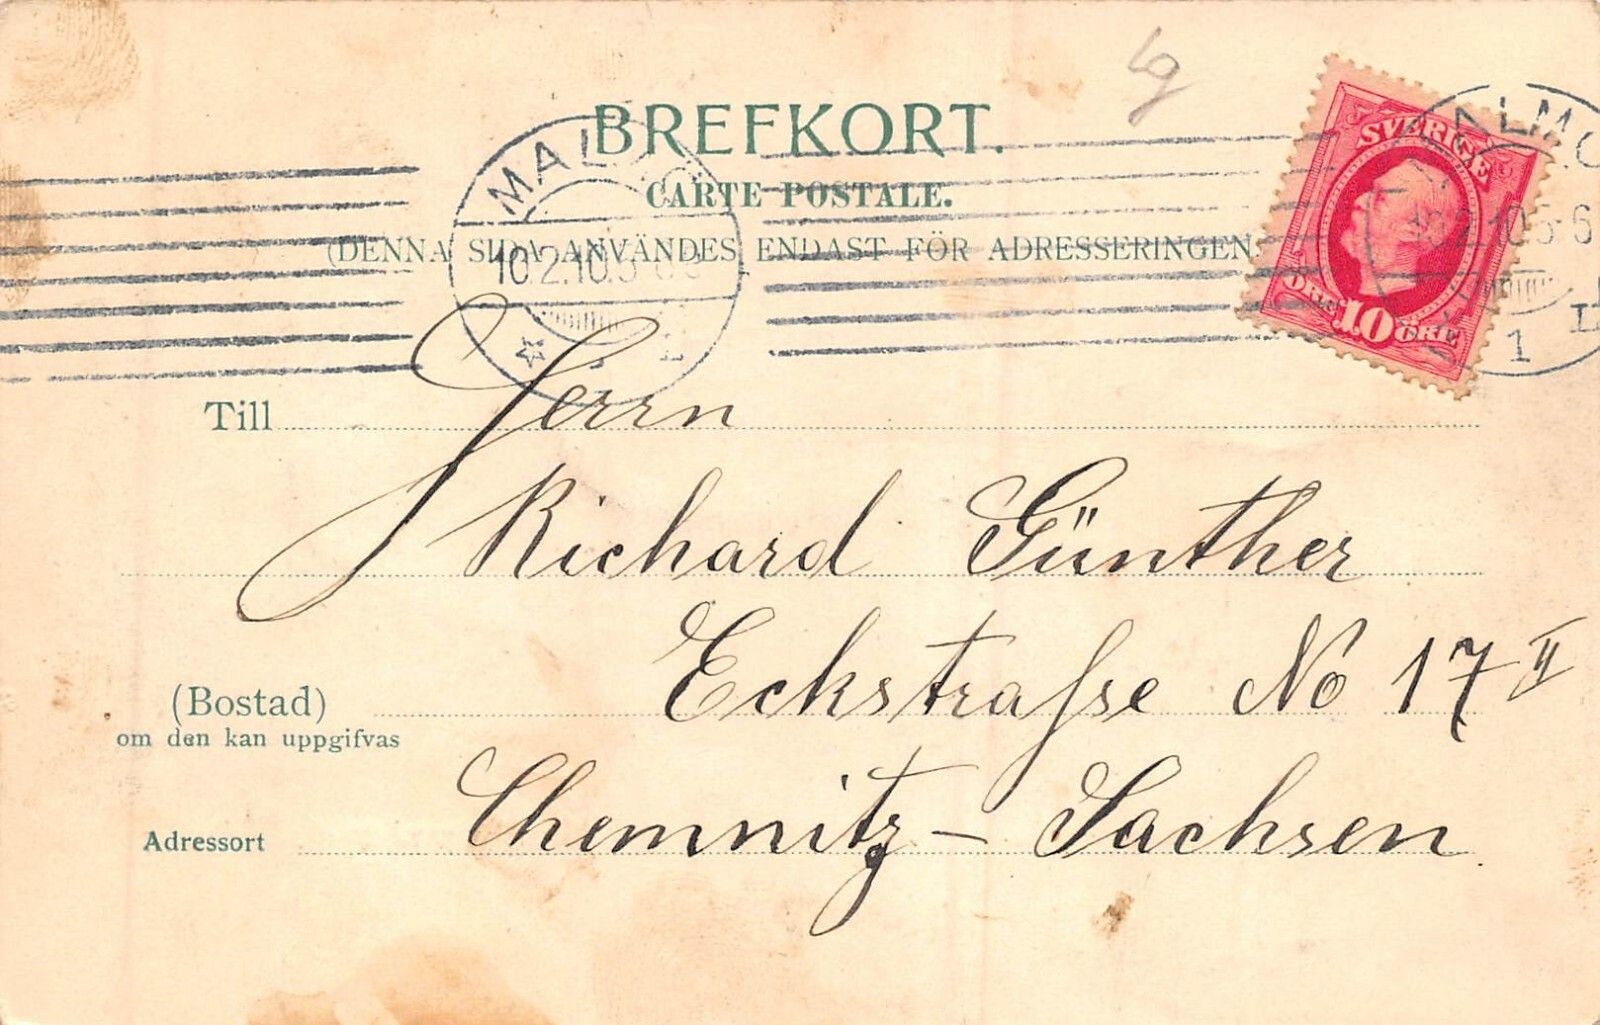 lg
BREFKORT.
CARTE POSTALE.
(DENNA SIDA ANVÄNDES ENDAST FÖR ADRESSERINGEN
MAL
10.2.10.5
SVERIGE
10
ÖRE
MALMÖ
10.2.10.5-6
1
Till Herrn
Richard Günther
(Bostad) Eckstraſse No 17 II
om den kan uppgifvas
Adressort Chemnitz – Sachsen